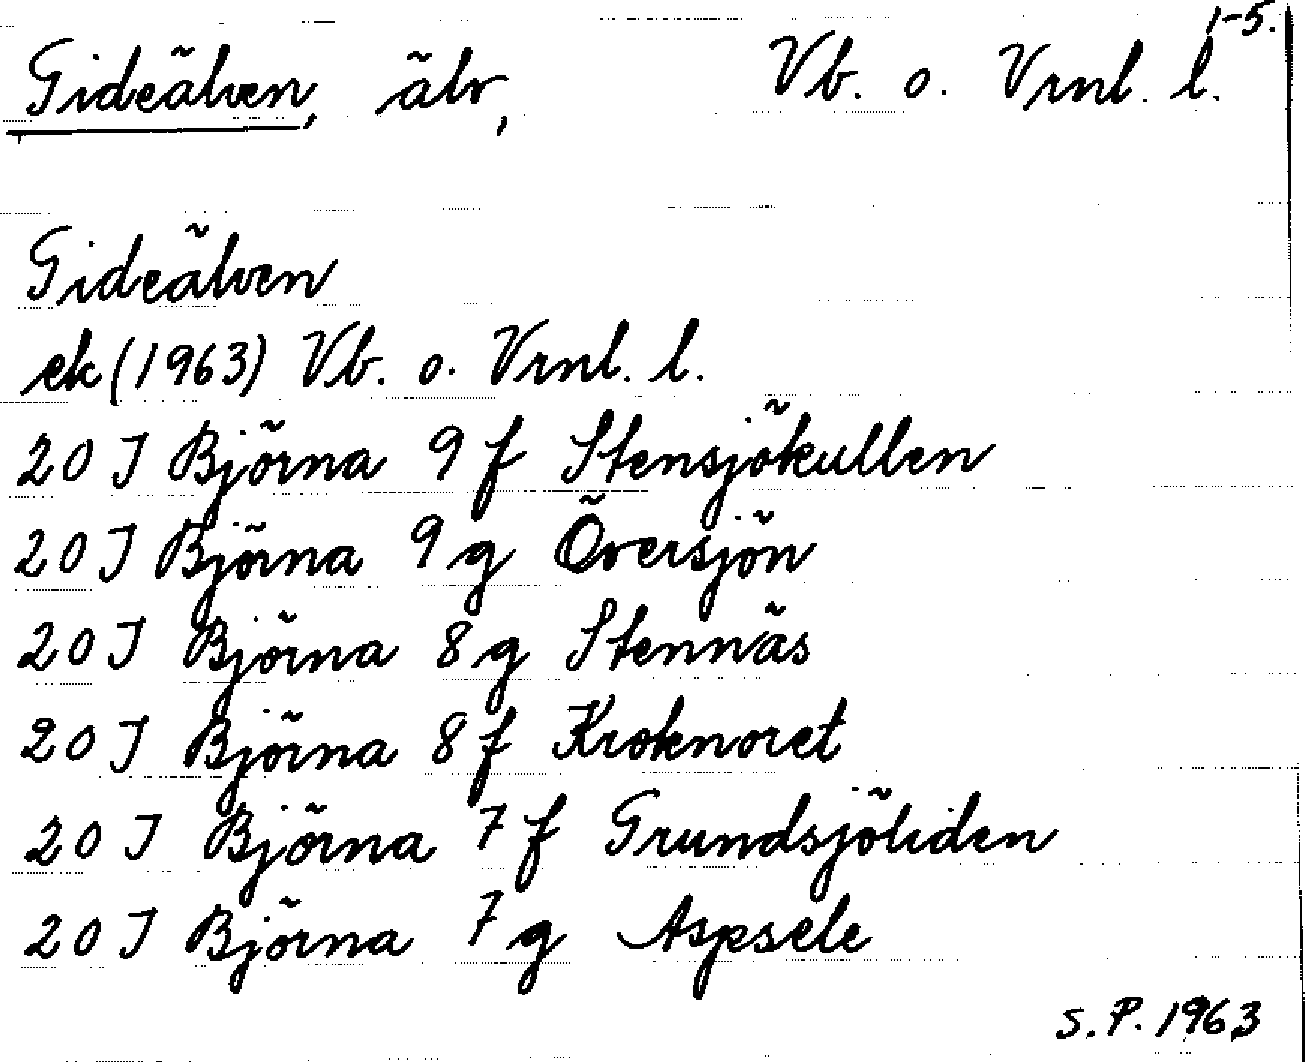 1-5.
Gideälven, älv, Vb. o. Vrnl. l.
Gideälven
ek (1963) Vb. o. Vrnl. l.
20 J Björna 9 f Stensjökullen
20 J Björna 9 g Översjön
20 J Björna 8 g Stennäs
20 J Björna 8 f Kroknoret
20 J Björna 7 f Grundsjöliden
20 J Björna 7 g Aspsele
S. P. 1963